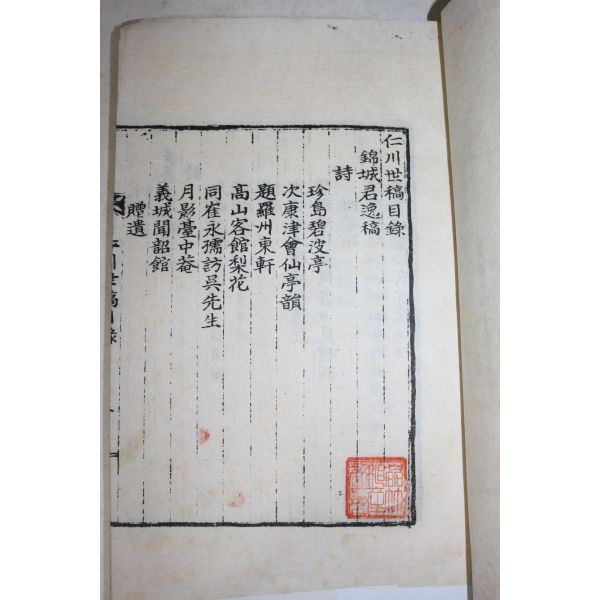 仁川世稿目錄
錦城君逸稿
詩
珍島碧波亭
次康津會仙亭韻
題羅州東軒
高山客館梨花
同崔永孺訪吳先生
月影臺中菴
義城聞韶館
贈遺
仁川世稿目錄